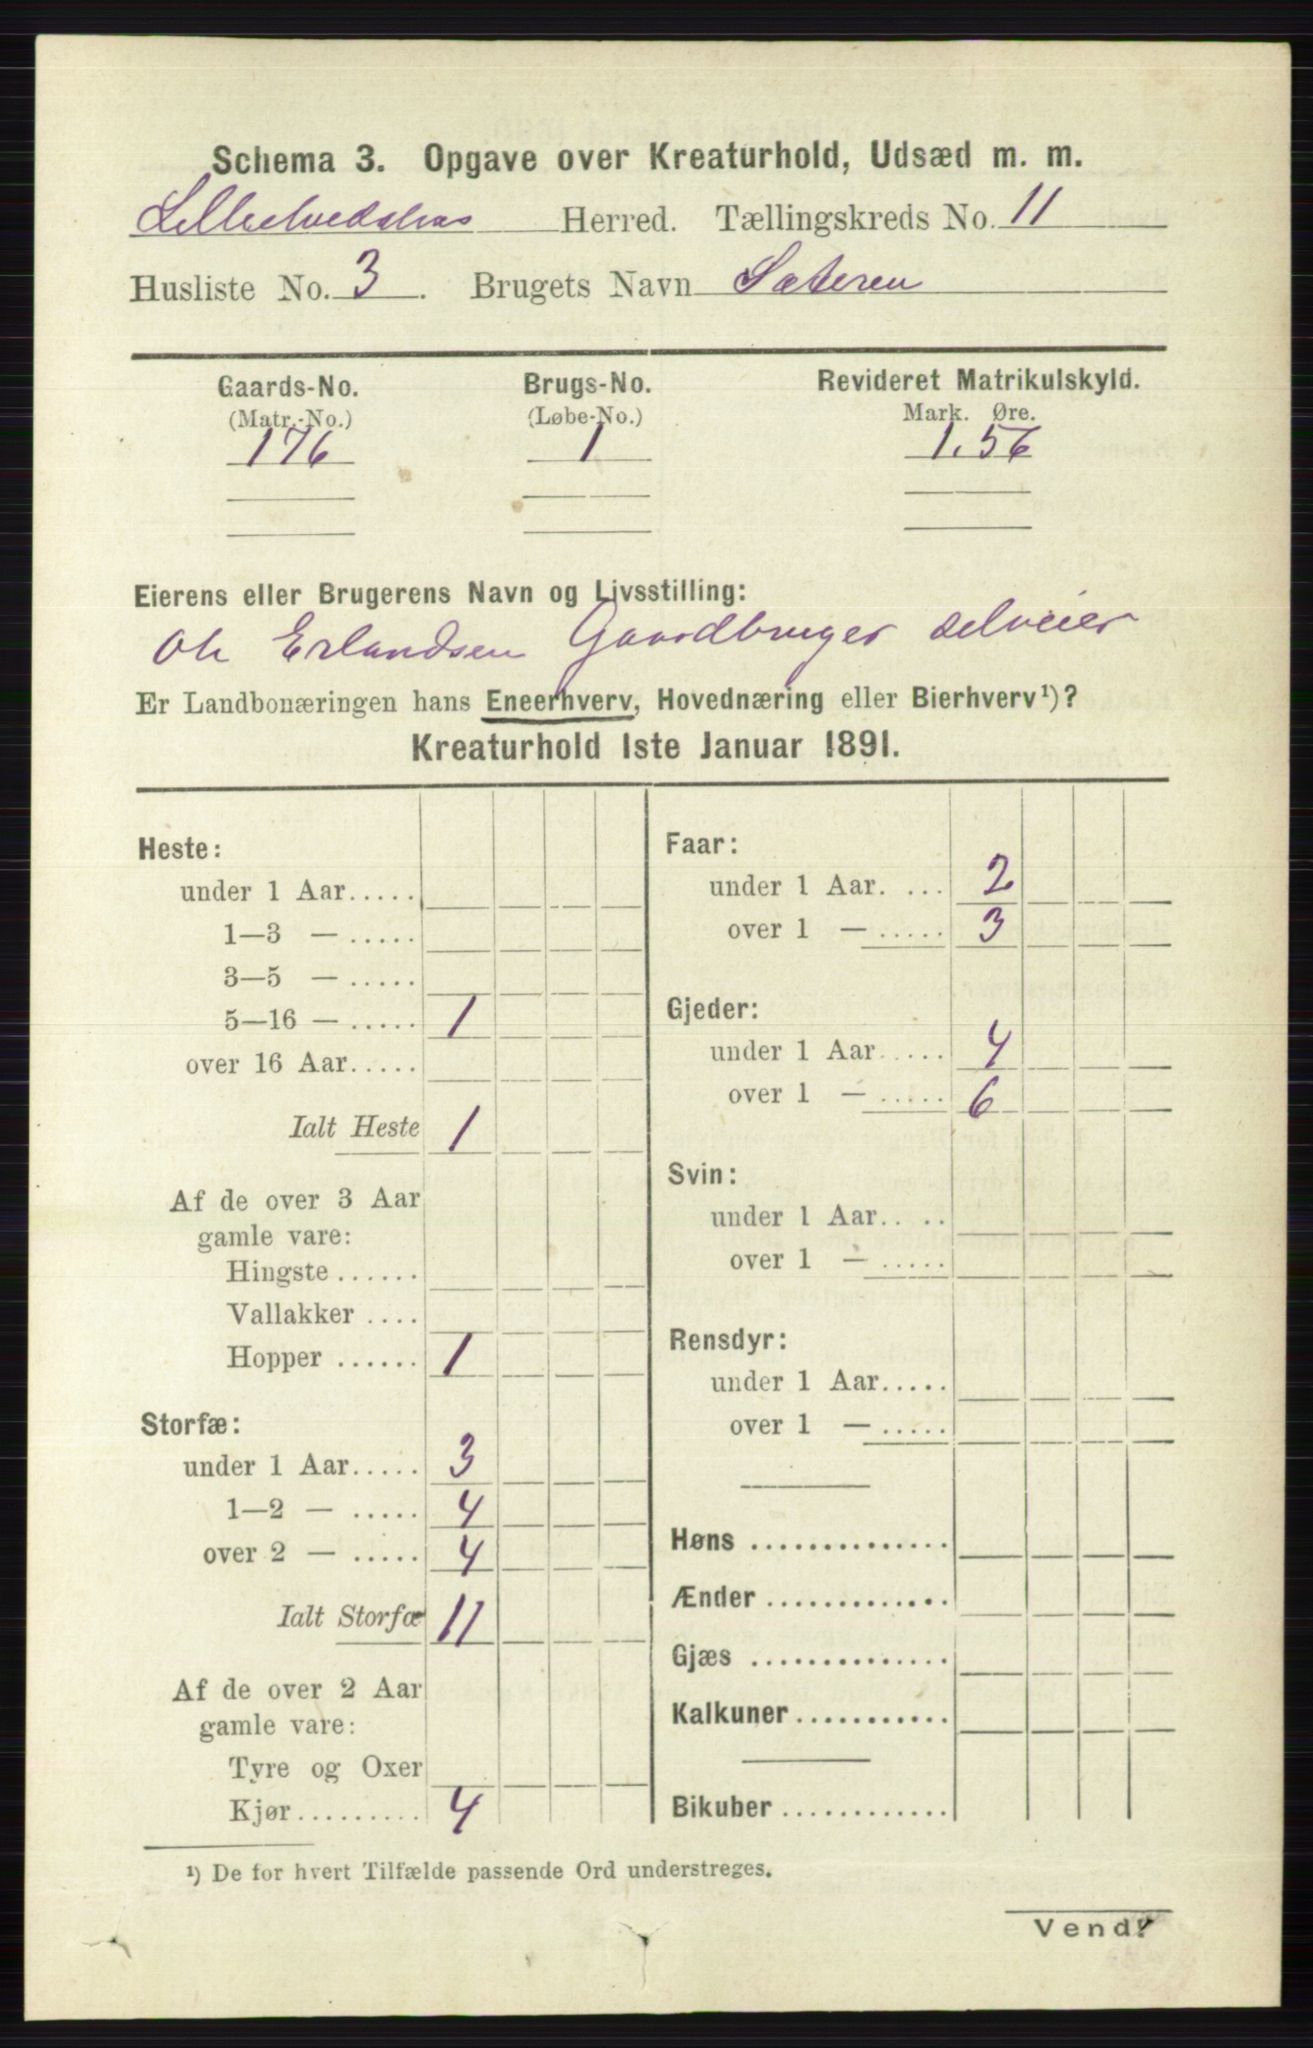 Schema 3. Opgave over Kreaturhold, Udsæd m. m.
Lilleelvedalens Herred. Tællingskreds No. 11
Husliste No. 3. Brugets Navn Sæteren
Gaards-No. Brugs-No. Revideret Matrikulskyld.
(Matr.-No.) (Løbe-No.) Mark. Øre.
176 1 1.56
Eierens eller Brugerens Navn og Livsstilling:
Ole Erlandsen Gaardbruger selveier
Er Landbonæringen hans Eneerhverv, Hovednæring eller Bierhverv¹)?
Kreaturhold 1ste Januar 1891.
Heste:
under 1 Aar.....
1—3 — .....
3—5 — .....
5—16 — ..... 1
over 16 Aar.....
Ialt Heste 1
Af de over 3 Aar
gamle vare:
Hingste ......
Vallakker ....
Hopper ...... 1
Storfæ:
under 1 Aar..... 3
1—2 — ..... 4
over 2 — ..... 4
Ialt Storfæ 11
Af de over 2 Aar
gamle vare:
Tyre og Oxer
Kjør......... 4
Faar:
under 1 Aar. ... 2
over 1 — ..... 3
Gjeder:
under 1 Aar..... 4
over 1 — ..... 6
Svin:
under 1 Aar.. ..
over 1 — .....
Rensdyr:
under 1 Aar.....
over 1 — .....
Høns ..............
Ænder .............
Gjæs ..............
Kalkuner...........
Bikuber ............
¹) De for hvert Tilfælde passende Ord understreges.
Vend!